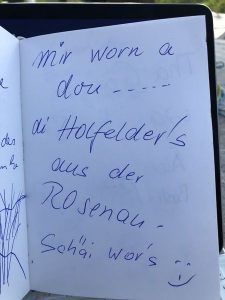 mir worn a
dou -----
di Holfelder's
aus der
Rosenau.
Schäi wor's
des